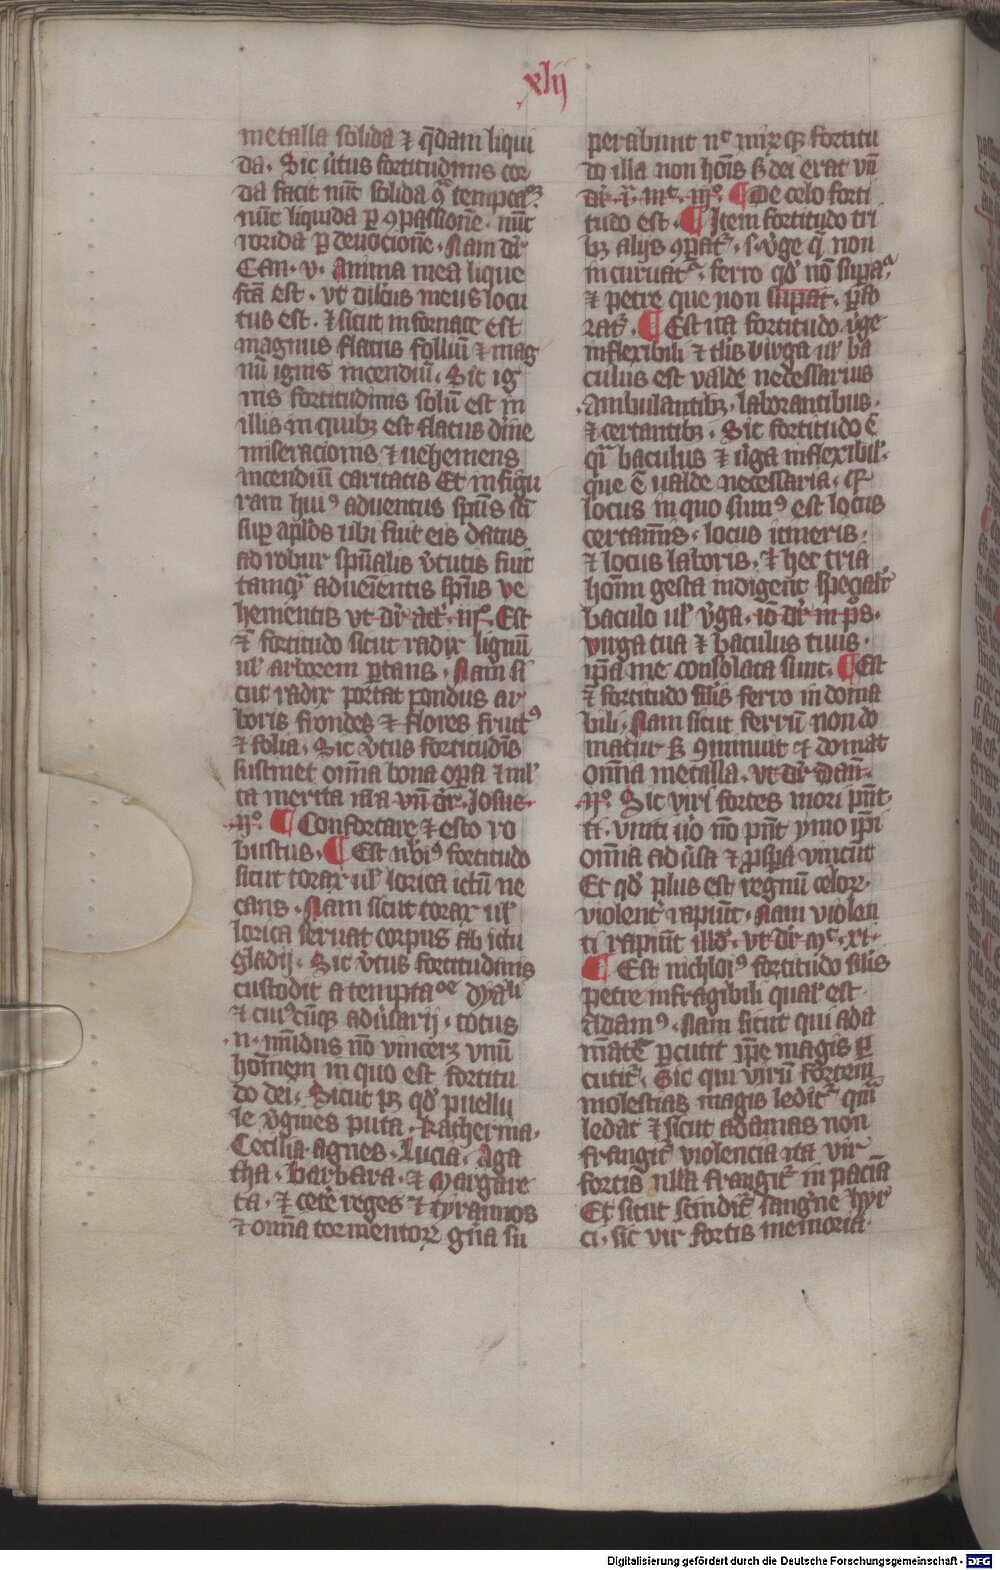 xlij
metalla solida ⁊ q̄dam liqui
da. Sic v̓tus fortitudinis cor
da facit nūc solida ꝯᷓ temptaᵒⁿᵉ.
nūc liquida ꝑ ꝯpassionē. nūc
rorida ꝑ deuocionē. Nam dr̄
Can. v. Anima mea lique
fcā est. vt dilcūs meus locu
tus est. ⁊ sicut in fornace est
magnus flatus folliū ⁊ mag
nū ignis incendiū. Sic ig
nis fortitudinis solū est in
illis in quibꝫ est flatus diīne
miseracionis ⁊ uehemens
incendiū caritatis Et in figu
ram huiꝰ aduentus spūs scī
suꝑ aplōs ubi fuit eis datus
ad robur spūalis v̓tutis fuit
tamqᷓ adueīentis spūis ve
hementis vt dr̄ Act̄. ij. Est
⁊̄ fortitudo sicut radix lignū
ul̓ arborem ꝑtans. Nam si
cut radix portat pondus ar
boris frondes ⁊ flores fruct̄ꝰ
⁊ folia. Sic v̓tus fortitudīs
sustinet om̄ia bona oꝑa ⁊ ml̓
ta merita nr̄a vn̄ dr̄ Iosue
ijᵒ. ¶ Confortare ⁊ esto ro
bustus. ¶ Est nobꝰ fortitudo
sicut torax ul̓ lorica ictū ne
cans. Nam sicut torax ul̓
lorica seruat corpus ab ictu
gladij. Sic v̓tus fortitudinis
custodit a temptaᵒⁿᵉ dyaˡⁱ
⁊ cuiꝰcūqꝫ adūsarij. totus
.n. mūdus nō vinceꝫ vnū
hom̄em in quo est fortitu
do dei. Sicut pꝫ qd̓ puellu
le v̓gines puta. Katherina.
Cecilia. agnes. Lucia. Aga
tha. Barbara. ⁊ Margare
ta. ⁊ cetē reges ⁊ tyrannos
⁊ om̄ia tormentoꝝ gn̄a su
perabunt nᶜ miꝝ qꝫ fortitu
do illa non hōis sꝫ dei erat vn̄
dr̄ p̓. mᶜ. iijᵒ. ¶ De celo forti
tudo est. ¶ Item fortitudo tri
bꝫ alijs ꝯꝑat᷑. s. v̓ge q̄ non
incuruat᷑. ferro qd̓ nō suꝑat᷑.
⁊ petre que non suꝑat. ꝑfo
rat᷑. ¶ Est ita fortitudo v̓ge
inflexibili ⁊ tlis virga ul̓ ba
culus est valde necessarius
Ambulantibꝫ. laborantibus.
⁊ certantibꝫ. Sic fortitudo ē
qᷓ baculus ⁊ v̓ga inflexibil̓.
que ē ualde necessaria. qꝛ
locus in quo sumꝰ est locus
certaīnis. locus itineris.
⁊ locus laboris. ⁊ hec tria
hom̄ gesta indigent specialr̄
baculo ul̓ v̓ga. iō dr̄ in ps̄.
virga tua ⁊ baculus tuus.
ip̄a me consolata sunt. ¶ Est
⁊̄ fortitudo silīs ferro indoma
bili. Nam sicut ferrū non do
matur sꝫ ꝯminuit ⁊ domat
om̄ia metalla. vt dr̄ Dan̄.
ijᵒ. Sic viri fortes mori pn̄t.
ti. vinti uō nō pn̄t ymo ip̄i
om̄ia aduīsa ⁊ ꝓspa vincūt
Et qd̓ plus est regnū celoꝝ.
violent̓ rapiūt. Nam violen
ti rapiūt illd̓. vt dr̄ Mᶜ. xi.
¶ Est nichloīꝰ fortitudo silīs
petre infragibili qual̓ est
Adamꝰ. Nam sicut qui ada
māte ꝑcutit ip̄e magis ꝑ
cutit᷑. Sic qui virū fortem
molestias magis ledit᷑ qm̄
ledat ⁊ sicut adamas non
frangit᷑ violencia ita vir
fortis nulla frangit᷑ inpaciā
Et sicut scindit᷑ sangⁱne hyr
ci. sic vir fortis memoria.
Digitalisierung gefördert durch die Deutsche Forschungsgemeinschaft - DFG